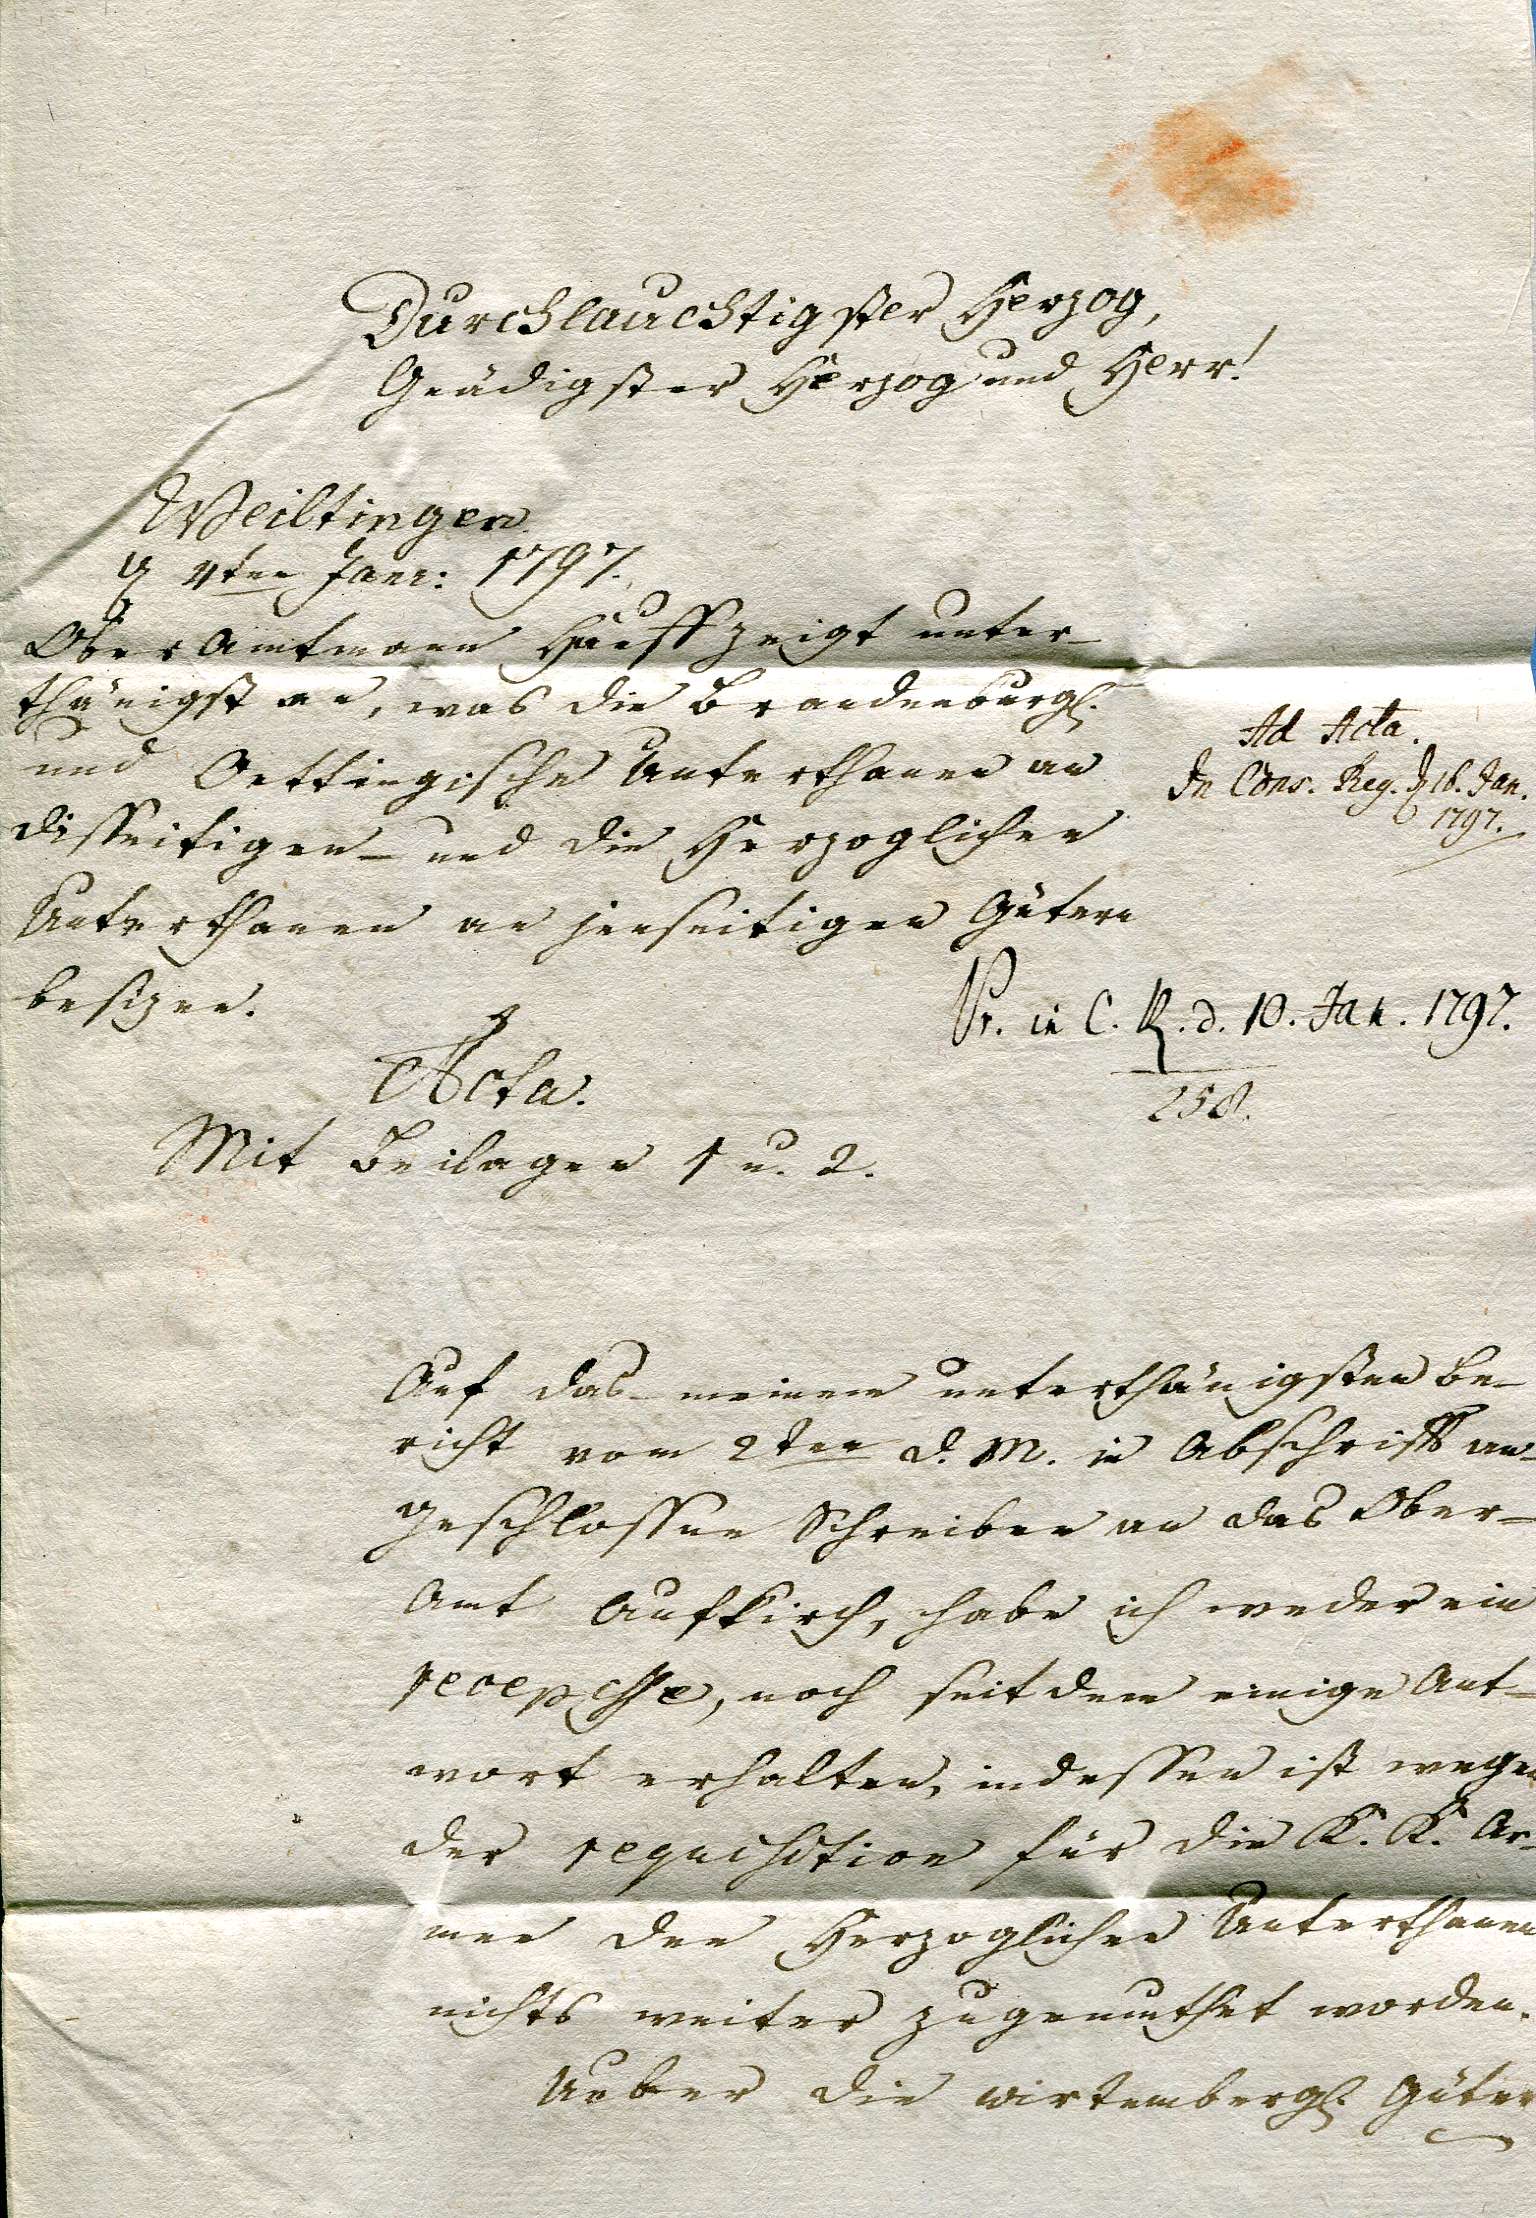 Durchlauchtigster Herzog,
Gnädigster Herzog und Herr!
Weiltingen
4ten Janr: 1797.
Ober Amtmann Hauff zeigt unter-
thänigst an, was die Brandenburgl.
und Oettingische Unterthanen an
disseitigen- und die Herzoglichen
Unterthanen an jenseitigen Gütern
besizen.
Ad Acta.
In Cons. Reg. d 16. Jan.
1797.
Pr. in C. R. d. 10. Jan. 1797.
258.
Acta.
Mit Beilagen 1 u. 2.
Auf das meinem unterthänigsten Be-
richt vom 2ten d. M. in Abschrift an-
geschlossene Schreiben an das Ober-
Amt Aufkirch, habe ich weder ein
recepisse, noch seitdem einige Ant-
wort erhalten, indessen ist wegen
der requisition für die K. K. Ar-
mee den Herzoglichen Unterthanen
nichts weiter zugemuthet worden.
Ueber die wirtembergl. Güter